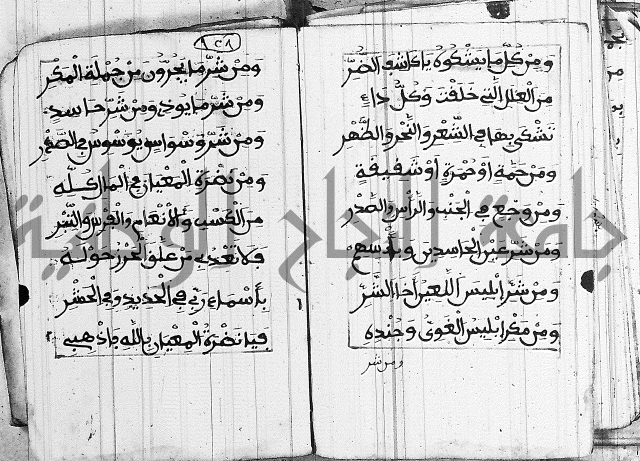 ومن كل ما يشكوه يا كاشف الضر
من العلل التي خلقت وكل داء
تشكى بها في الشعر والنحر والظهر
ومن حمة او حمرة او شفيفة
ومن وجع في الجنب والرأس والصدر
ومن شر عين الحاسدين وبأسهم
ومن شر ابليس اللعين أخا الشر
ومن مكر ابليس الغوى وجنده
ومن شر
٨٢٨
ومن شر ما يجرون من جملة المكر
ومن شر ما يوذى ومن شر حاسد
ومن شر وسواس يوسوس في الصدر
ومن نضرة المعيان في المال كله
من الكسب والانعام والغرس والشر
فلا تعد من علق الحرز حوله
بأسماء ربي في الحديد وفي الحشر
فيا نضرة المعيان بالله فاذهبي
جامعة النجاح الوطنية